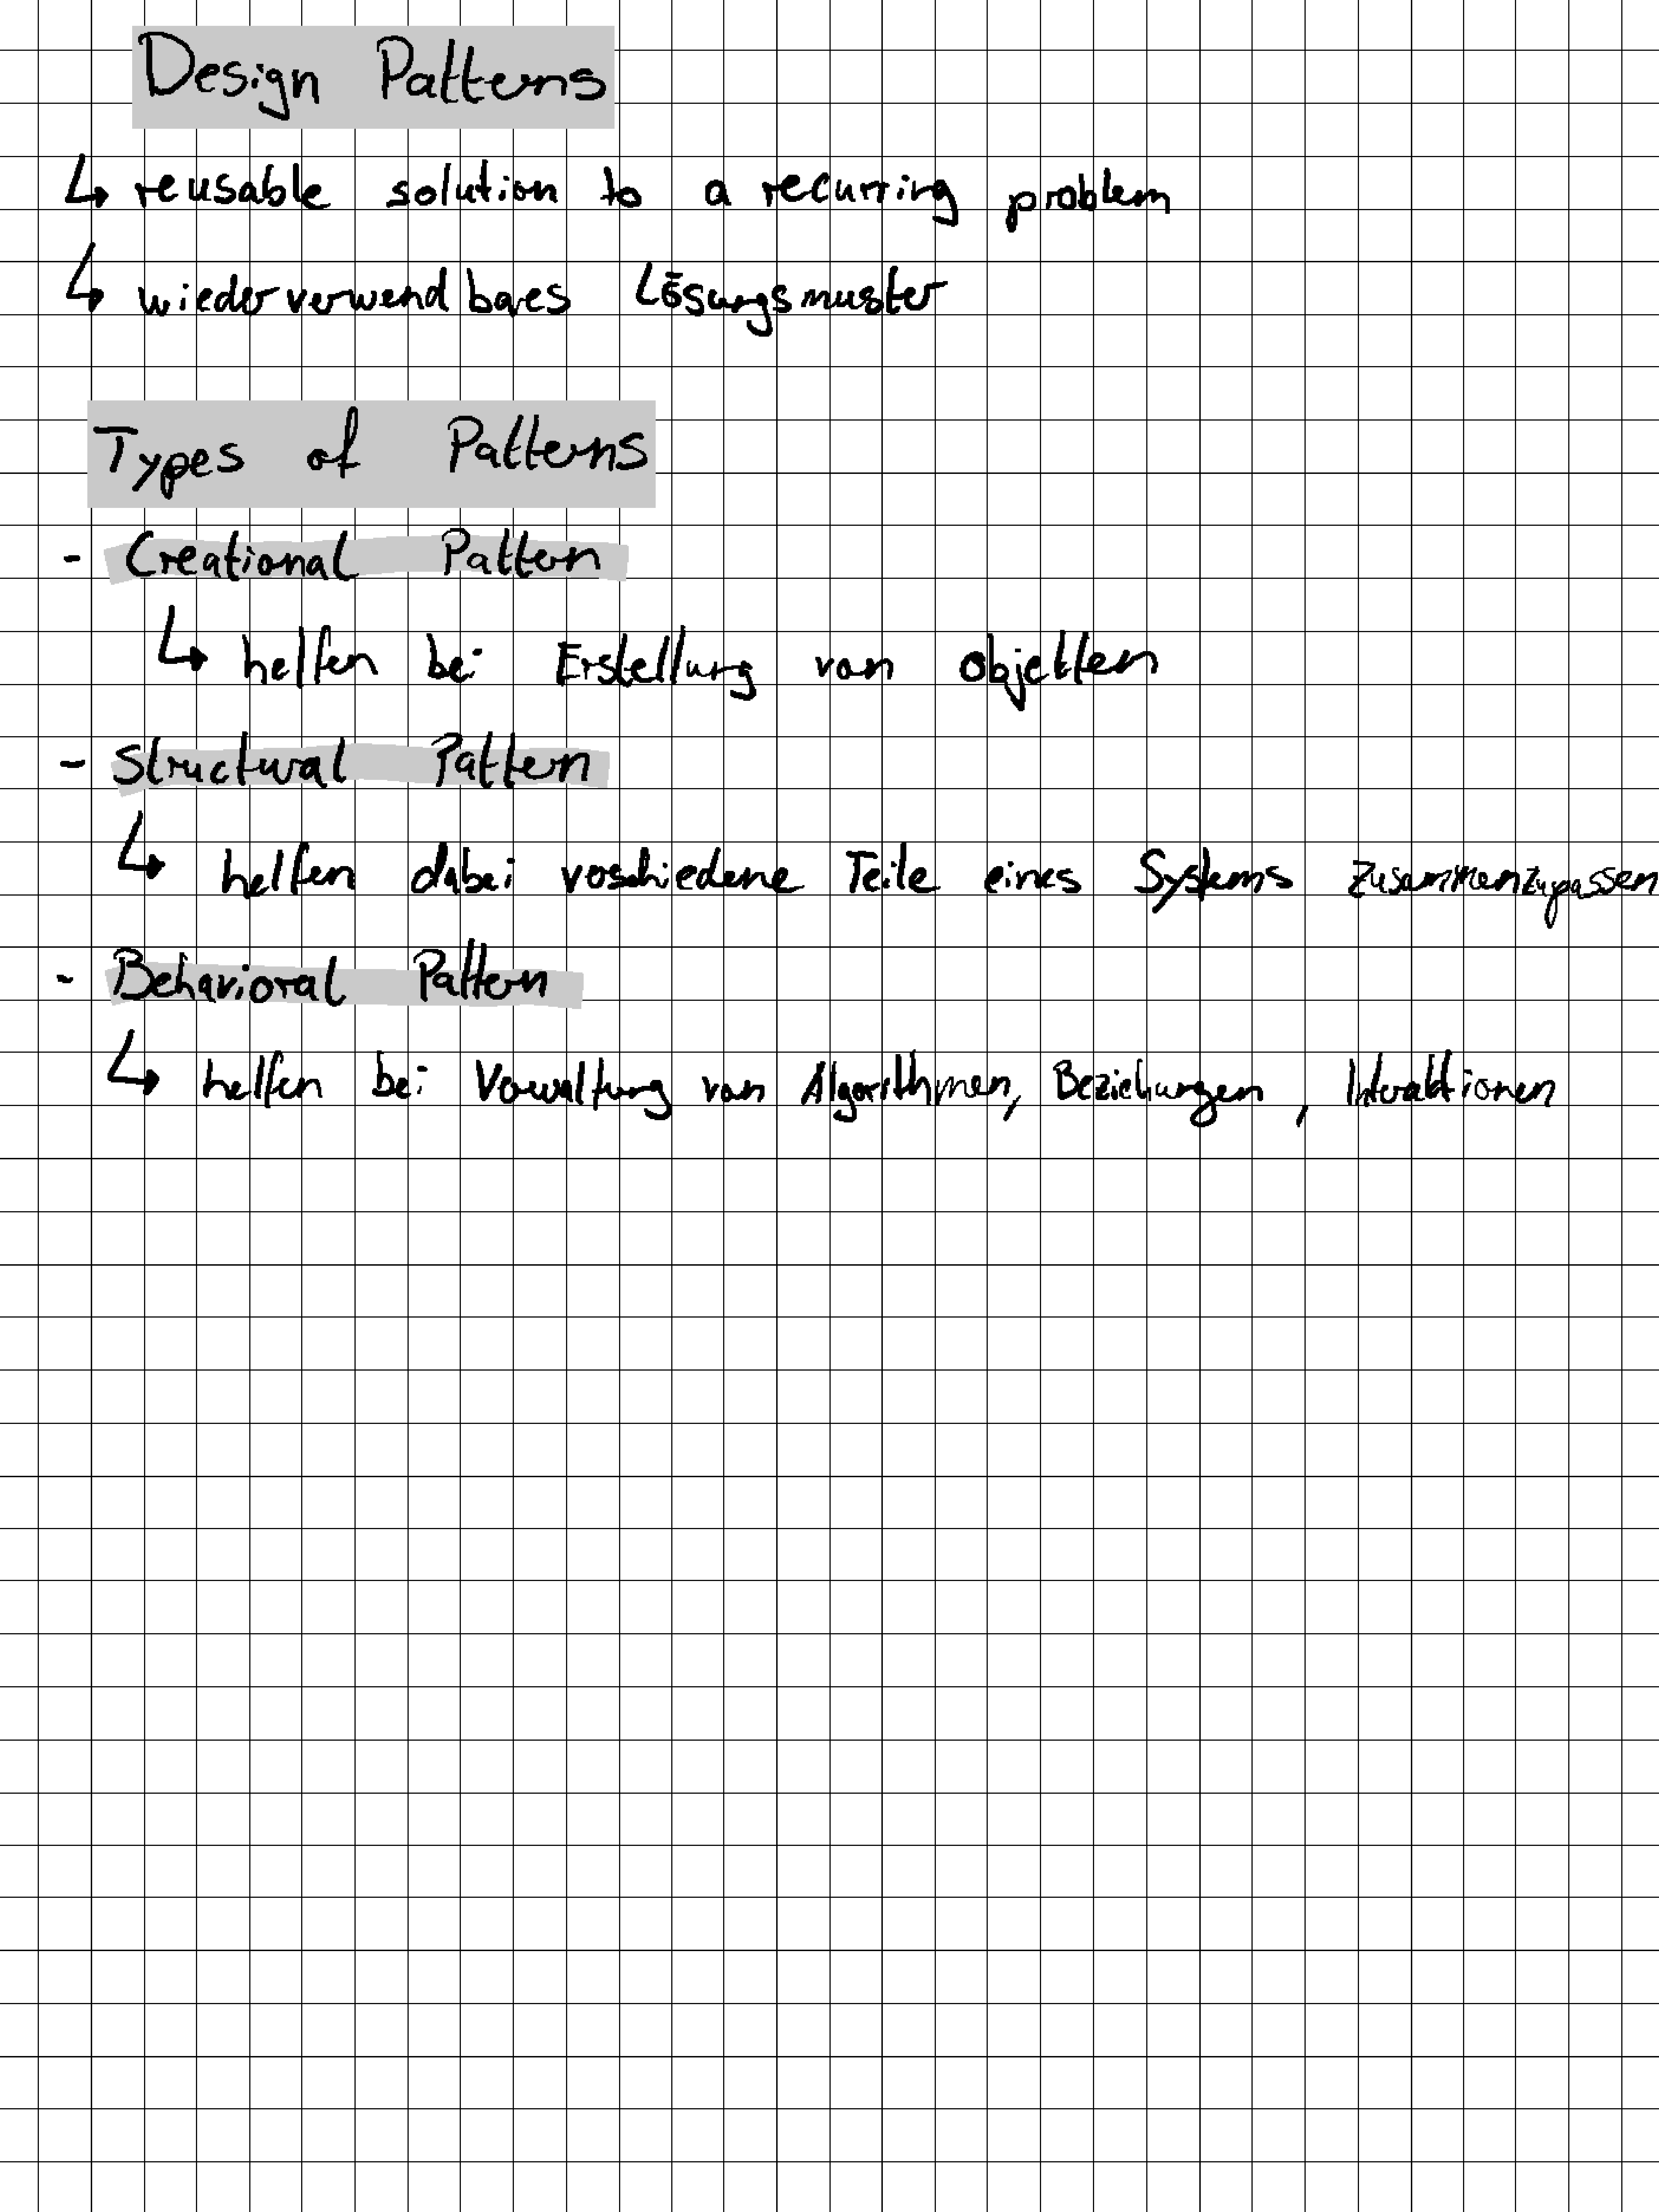 Design Patterns
↳ reusable solution to a recurring problem
↳ wiederverwendbares Lösungsmuster
Types of Patterns
- Creational Pattern
↳ helfen bei Erstellung von Objekten
- Structural Pattern
↳ helfen dabei verschiedene Teile eines Systems zusammenzupassen
- Behavioral Pattern
↳ helfen bei Verwaltung von Algorithmen, Beziehungen, Interaktionen